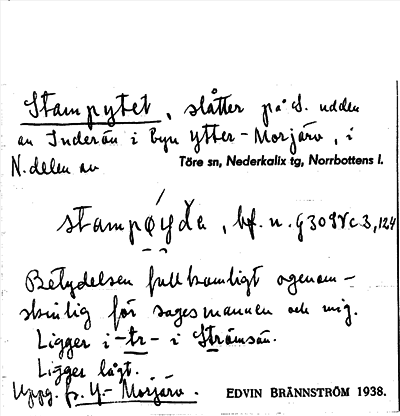 Stampytet, slåtter på S. udden
av Inderön i byn Ytter-Morjärv, i
N. delen av Töre sn, Nederkalix tg, Norrbottens l.
stampøyda, bf. n.
Betydelsen fullkomligt ogenom-
skinlig för sagesmannen och mig.
Ligger i -tr- i Strömsån.
Ligger lågt.
Uppg. fr. Y.- Morjärv. EDVIN BRÄNNSTRÖM 1938.